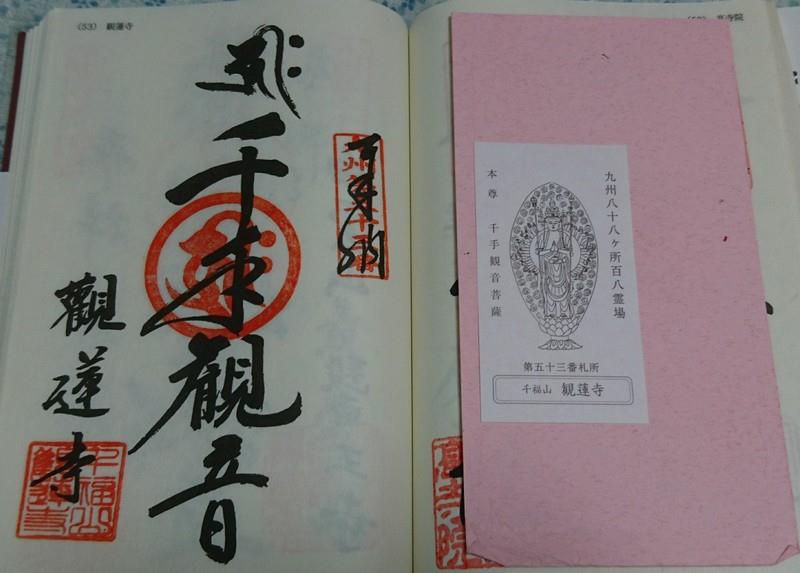 (53) 観蓮寺
奉納
千手観音
觀蓮寺
九州八十八ヶ所百八霊場
本尊 千手観音菩薩
第五十三番札所
千福山 観蓮寺